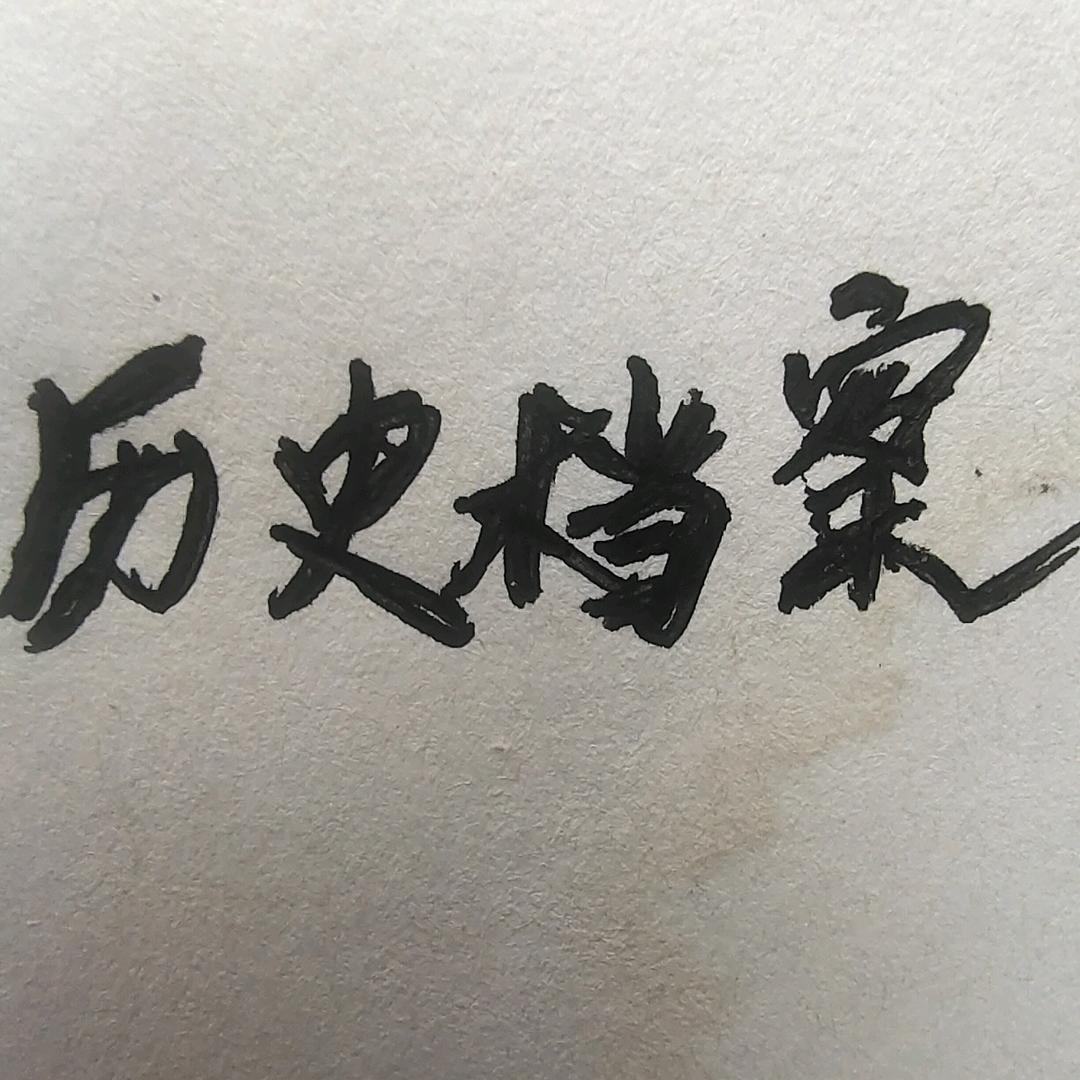 历史档案